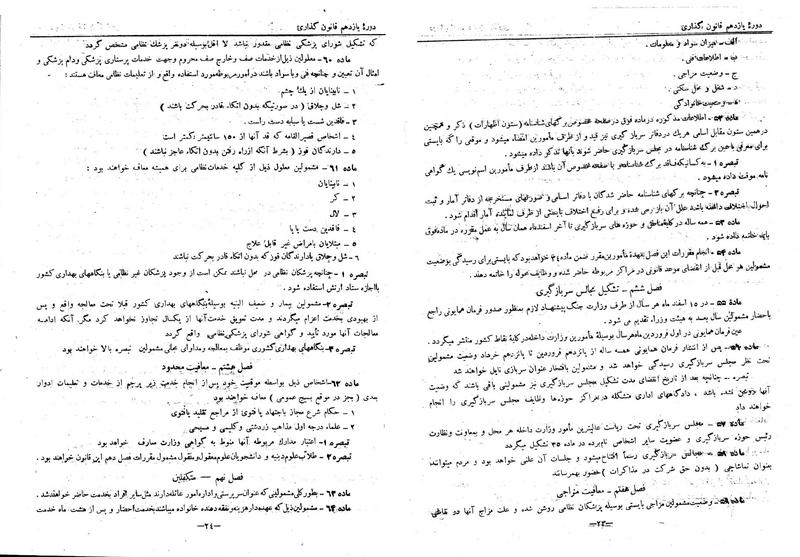 دورهٔ یازدهم قانون گذاری
الف - میزان سواد و معلومات .
ب - اطلاعات فنی .
ج - وضعیت مزاجی .
د - شغل و محل سکنی .
ه - وضعیت خانوادگی
ماده ۵۳ - اطلاعات مذکوره در ماده فوق در صفحه مخصوص برگهای شناسنامه (ستون اظهارات) ذکر و همچنین
در همین ستون مقابل اسامی هر یک در دفاتر سرباز گیری نیز قید و از طرف مأمورین امضاء میشود و موقعی را که بایستی
برای معرفی با عین برگ شناسنامه در مجلس سربازگیری حاضر شوند بآنها تذکر داده میشود .
تبصره ۱ - به کسانیکه فاقد برگ شناسنامه یا صفحه مخصوص آن باشند از طرف مأمورین اسم نویسی یک گواهی
نامه موقت داده میشود .
تبصره ۲ - چنانچه برگهای شناسنامه حاضر شدگان با دفاتر اسامی و صورتهای مستخرجه از دفاتر آمار و ثبت
احوال اختلاف داشته باشد علل آن بازرسی شده و برای رفع اختلاف بایستی از طرف نماینده آمار اقدام شود .
ماده ۵۳ - همه ساله در کلیهٔ مناطق و حوزه های سربازگیری تا آخر اسفندماه همان سال به عمل مقرره در ماده فوق
باید خاتمه داده شود .
ماده ۵۴ - انجام مقررات این فصل بعهدهٔ مأمورین مقرر ضمن ماده ۴۹ خواهد بود که بایستی برای رسیدگی بوضعیت
مشمولین هر محل قبل از انقضای موعد قانونی در مراکز مربوطه حاضر شده و وظایف محوله را خاتمه دهند .
فصل ششم - تشکیل مجالس سربازگیری
ماده ۵۵ - در ۱۵ اسفند ماه هر سال از طرف وزارت جنگ پیشنهاد لازم بمنظور صدور فرمان همایونی راجع
باحضار مشمولین سال بعد به هیئت وزراء تقدیم می شود .
عین فرمان همایونی در اول فروردین ماه هر سال بوسیلهٔ مأمورین وزارت داخله در کلیهٔ نقاط کشور منتشر میگردد .
ماده ۵۶ - پس از انتشار فرمان همایونی همه ساله از پانزدهم فروردین تا پانزدهم خرداد وضعیت مشمولین
تحت نظر مجلس سربازگیری رسیدگی خواهد شد و مشمولین بافتخار عنوان سربازی نایل خواهند شد
تبصره - چنانچه بعد از تاریخ انقضای مدت تشکیل مجلس سربازگیری نیز مشمولینی باقی باشند که وضعیت
آنها معین نشده باشد ، دادگاههای اداری متشکله در مراکز حوزه‌ها وظایف مجلس سربازگیری را انجام
خواهند داد
ماده ۵۷ - مجلس سربازگیری تحت ریاست عالیترین مأمور وزارت داخله هر محل و بمعاونت و نظارت
رئیس حوزه سربازگیری و عضویت سایر اشخاص نام‌برده در ماده ۳۵ تشکیل میگردد
ماده ۵۸ - مجالس سربازگیری رسماً افتتاح میشود و جلسات آن علنی خواهد بود و مردم میتوانند
بعنوان تماشاچی ( بدون حق شرکت در مذاکرات ) حضور بهمرسانند
فصل هفتم - معافیت مزاجی
ماده ۵۹ - وضعیت مشمولین مزاجی بایستی بوسیله پزشکان نظامی روشن شده و علت مزاج آنها در نقاطی
-۲۳-
دورهٔ یازدهم قانون گذاری
که تشکیل شورای پزشکی نظامی مقدور نباشد لا اقل بوسیله دونفر پزشک نظامی مشخص گردد
ماده ۶۰ - معلولین ذیل از خدمات صف و خارج صف محروم و جهت خدمات پرستاری پزشکی و دام پزشکی و
امثال آن تعیین و چنانچه فنی و با سواد باشند در امور مربوطه مورد استفاده واقع و از تعلیمات نظامی معاف هستند :
۱ - نابینایان از یک چشم .
۲ - شل و چلاق ( در صورتیکه بدون اتکاء قادر بحرکت باشند )
۳ - فاقدین شست یا سبابه دست راست .
۴ - اشخاص قصیرالقامه که قد آنها از ۱۵۰ سانتیمتر کمتر است
۵ - دارندگان قوز ( بشرط آنکه از راه رفتن بدون اتکاء عاجز نباشند )
ماده ۶۱ - مشمولین معلول ذیل از کلیه خدمات نظامی برای همیشه معاف خواهند بود :
۱ - نابینایان
۲ - کر
۳ - لال
۴ - فاقدین دست یا پا
۵ - مبتلایان بامراض غیر قابل علاج
۶ - شل و چلاق یا دارندگان قوز که بدون اتکاء قادر بحرکت نباشند
تبصره ۱ - چنانچه پزشکان نظامی در محل نباشند ممکن است از وجود پزشکان غیر نظامی یا بنگاههای بهداری کشور
با اجازه ستاد ارتش استفاده شود .
تبصره ۲ - مشمولین بیمار و ضعیف البنیه بوسیلهٔ بنگاههای بهداری کشور قبلا تحت معالجه واقع و پس
از بهبودی بخدمت اعزام میگردند و مدت تعویق خدمت آنها از یکسال تجاوز نخواهد کرد مگر آنکه ادامه
معالجات آنها مورد تأیید و گواهی شورای پزشکی نظامی واقع گردد
تبصره ۳ - بنگاههای بهداری کشوری موظف بمعالجه و مداوای مجانی مشمولین تبصره بالا خواهند بود
فصل هشتم - معافیت محدود
ماده ۶۲ - اشخاص ذیل بواسطه موقعیت خود پس از انجام خدمت زیر پرچم از خدمات و تعلیمات ادوار
بعدی ( بجز در موقع بسیج عمومی ) معاف خواهند بود
۱ - حکام شرع مجاز باجتهاد یا فتوی از مراجع تقلید یا فتوی
۲ - علماء درجه اول مذاهب زردشتی و کلیمی و مسیحی
تبصره ۱ - اعتبار مدارک مربوطه آنها منوط به گواهی وزارت معارف خواهد بود
تبصره ۲ - طلاب علوم دینیه و دانشجویان علوم معقول و منقول مشمول مقررات فصل دهم این قانون خواهند بود .
فصل نهم - متکفلین
ماده ۶۳ - بطور کلی مشمولینی که عنوان سرپرستی و اداره امور عائله دارند مثل سایر افراد بخدمت حاضر خواهند شد .
ماده ۶۴ - مشمولین ذیل که عهده دار هزینه و نفقه دهنده خانواده میباشند بخدمت احضار و پس از هشت ماه خدمت
-۲۴-